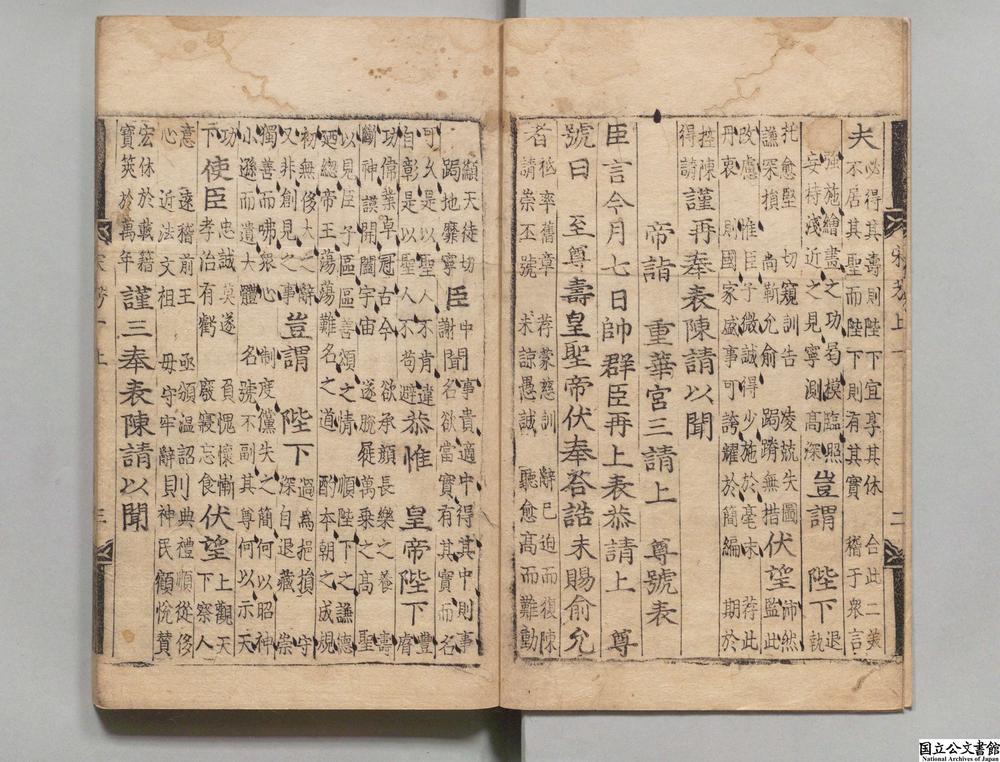 夫必得其壽則陛下宜享其休 合此二美
不居其聖而陛下則有其實 稽于衆言
強施繪畫之功曷模臨照 退
妄持淺近之見寧測髙深豈謂 陛下執
托愈堅 切窺訓告 凌兢失圖 沛然
謙深損 尚靳允俞 跼蹐無措伏望監此
改慮 惟臣子微誠得少施於毫末 荐此
丹衷 則國家盛事可誇耀於簡編 期於
控陳
得請謹再奉表陳請以聞
帝詣 重華宮三請上 尊號表
臣言今月七日帥群臣再上表恭請上 尊
號曰 至尊壽皇聖帝伏奉荅誥未賜俞允
者祗率舊章 荐蒙慈訓 辭已迫而復陳
請崇丕號 未諒愚誠 聽愈髙而難動
二
顲天徒切
跼地靡寧臣中謝聞事貴適中得其中則事
名欲當實有其實而名
可久是以聖人不肯違 豊
自彰是以聖人不苟避恭惟 皇帝陛下膺
功偉業卓冠古今 欲承顔長樂之養 壽
斷神謨開闔宇宙 遂脫屣萬乗之髙 聖
以見臣子區區善頌之情 順陛下之謙德
廼緫帝王蕩蕩難名之道 酌本朝之成䂓
初無侈大之辭 過為挹損 守
又非創見之事豈謂 陛下深自退藏 崇
獨善而咈衆心 制度儻失之簡何以昭神
小遜而遺大體 名號不副其尊何以示天
功 忠誠莫遂 負愧懷慚 上觀天
下使臣孝治有虧 廢寢忘食伏望下察人
意 遠稽前王 亟頒溫詔則典禮順從侈
心 近法文祖 毋守牢辭則神民顧悅賛
宏休於載籍
寳筴於萬年謹三奉表陳請以聞
三
国立公文書館
National Archives of Japan